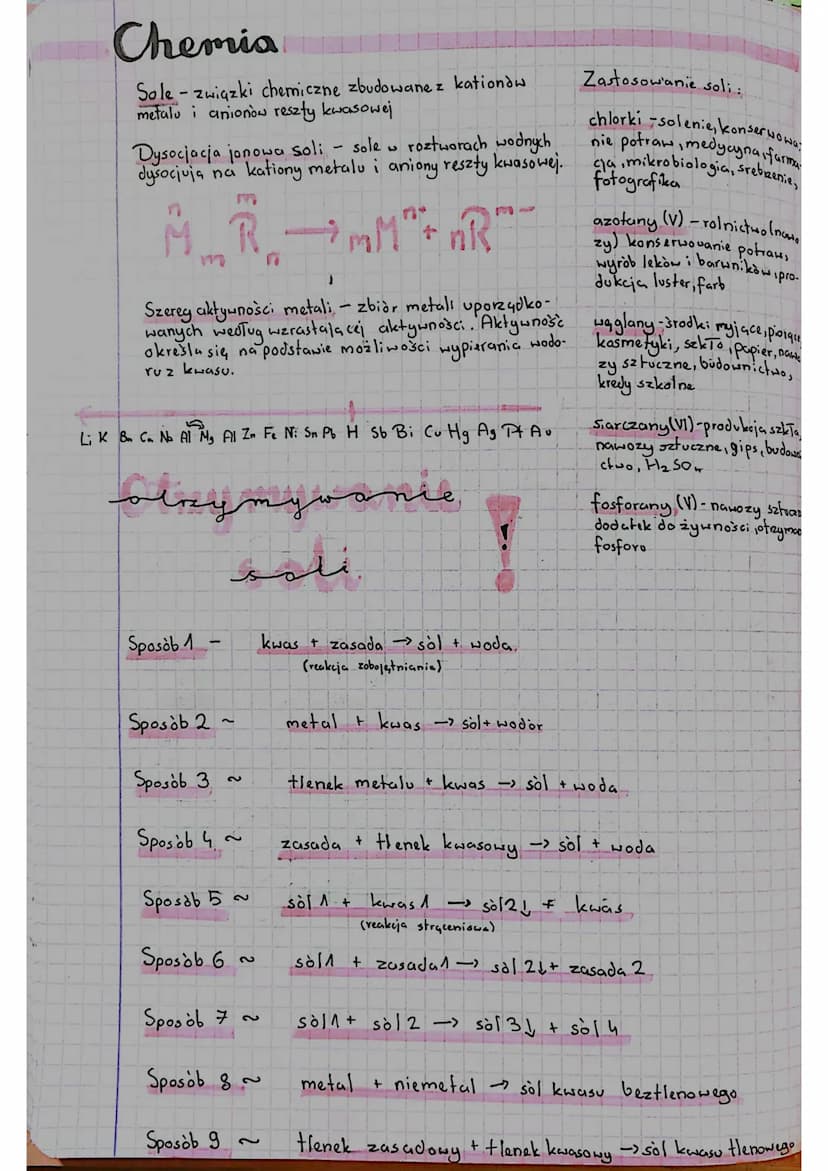 Chemia
Sole - związki chemiczne zbudowane z kationów
metalu i anionów reszty kwasowej
Dysocjacja jonowa soli - sole w roztworach wodnych
dysocjują na kationy metalu i aniony reszty kwasowej.
n m
M m R n → mMⁿ⁺ + nRᵐ⁻
Szereg aktywności metali - zbiór metali uporządko-
wanych według wzrastającej aktywności. Aktywność
określa się na podstawie możliwości wypierania wodo-
ru z kwasu.
Li K Ba Ca Na Al Mg Al Zn Fe Ni Sn Pb H Sb Bi Cu Hg Ag Pt Au
otrzymywanie
soli !
Sposób 1 - kwas + zasada → sól + woda
(reakcja zobojętniania)
Sposób 2 ~ metal + kwas → sól + wodór
Sposób 3 ~ tlenek metalu + kwas → sól + woda
Sposób 4 ~ zasada + tlenek kwasowy → sól + woda
Sposób 5 ~ sól 1 + kwas 1 → sól 2↓ + kwas
(reakcja strąceniowa)
Sposób 6 ~ sól 1 + zasada 1 → sól 2↓ + zasada 2
Sposób 7 ~ sól 1 + sól 2 → sól 3↓ + sól 4
Sposób 8 ~ metal + niemetal → sól kwasu beztlenowego
Sposób 9 ~ tlenek zasadowy + tlenek kwasowy → sól kwasu tlenowego
Zastosowanie soli:
chlorki - solenie, konserwowa-
nie potraw, medycyna, farma-
cja, mikrobiologia, srebrzenie,
fotografika
azotany (V) - rolnictwo (nawo
zy) konserwowanie potraw,
wyrób leków i barwników, pro-
dukcja luster, farb
węglany - środki myjące, piorące
kosmetyki, szkło, papier, nawo
zy sztuczne, budownictwo,
kredy szkolne
siarczany (VI) - produkcja szkła,
nawozy sztuczne, gips, budowni
ctwo, H₂SO₄
fosforany (V) - nawozy sztucz
dodatek do żywności, otrzyma
fosforu